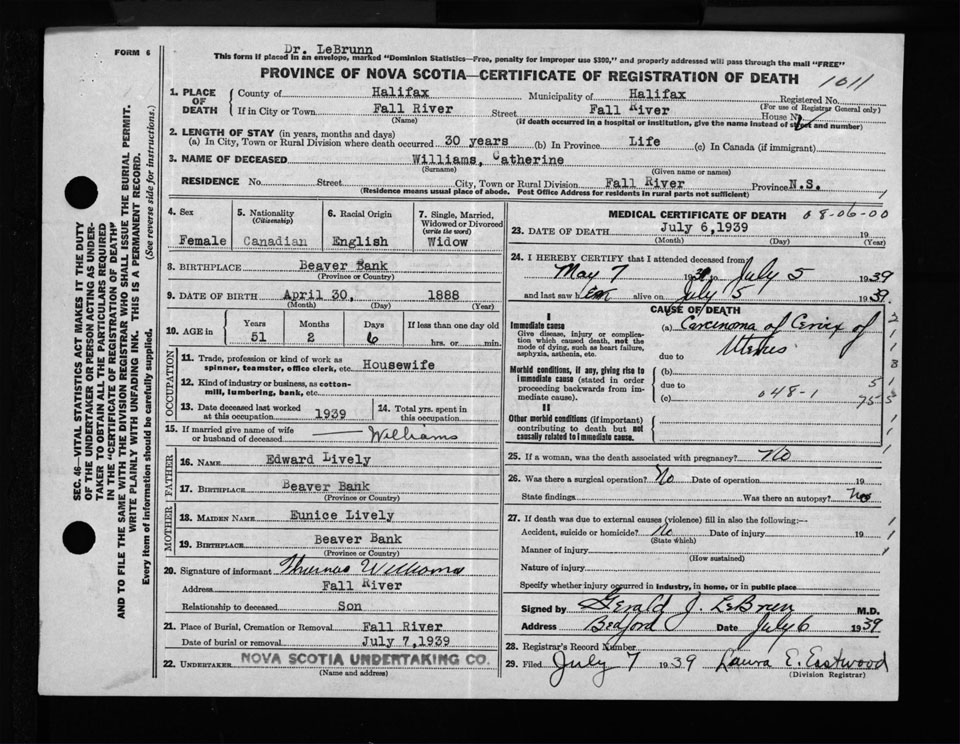 FORM 6
Dr. LeBrunn
This form if placed in an envelope, marked "Dominion Statistics—Free, penalty for improper use $300," and properly addressed will pass through the mail "FREE"
PROVINCE OF NOVA SCOTIA—CERTIFICATE OF REGISTRATION OF DEATH
1011
1. PLACE OF DEATH
County of Halifax Municipality of Halifax Registered No.
(For use of Registrar General only)
If in City or Town Fall River Street Fall River House No
(Name) (If death occurred in a hospital or institution, give the name instead of street and number)
2. LENGTH OF STAY (in years, months and days)
(a) In City, Town or Rural Division where death occurred 30 years (b) In Province Life (c) In Canada (if immigrant)
3. NAME OF DECEASED Williams, Catherine
(Surname) (Given name or names)
RESIDENCE No. Street City, Town or Rural Division Fall River Province N.S.
(Residence means usual place of abode. Post Office Address for residents in rural parts not sufficient)
4. Sex
Female
5. Nationality
(Citizenship)
Canadian
6. Racial Origin
English
7. Single, Married, Widowed or Divorced
(write the word)
Widow
8. BIRTHPLACE Beaver Bank
(Province or Country)
9. DATE OF BIRTH April 30, 1888
(Month) (Day) (Year)
10. AGE in
Years Months Days If less than one day old
51 2 6 hrs. or min.
OCCUPATION
11. Trade, profession or kind of work as spinner, teamster, office clerk, etc. Housewife
12. Kind of industry or business, as cotton-mill, lumbering, bank, etc.
13. Date deceased last worked at this occupation 1939
14. Total yrs. spent in this occupation
15. If married give name of wife or husband of deceased — Williams
FATHER
16. NAME Edward Lively
17. BIRTHPLACE Beaver Bank
(Province or Country)
MOTHER
18. MAIDEN NAME Eunice Lively
19. BIRTHPLACE Beaver Bank
(Province or Country)
20. Signature of informant Thomas Williams
Address Fall River
Relationship to deceased Son
21. Place of Burial, Cremation or Removal Fall River
Date of burial or removal July 7,1939
22. UNDERTAKER NOVA SCOTIA UNDERTAKING CO.
(Name and address)
MEDICAL CERTIFICATE OF DEATH 08-06-00
23. DATE OF DEATH July 6,1939
(Month) (Day) (Year)
24. I HEREBY CERTIFY that I attended deceased from
May 7 1939 to July 5 1939
and last saw h er alive on July 5 1939
CAUSE OF DEATH
I
Immediate cause
Give disease, injury or complication which caused death, not the mode of dying, such as heart failure, asphyxia, asthenia, etc.
(a) Carcinoma of Cervix of
Uterus
due to
Morbid conditions, if any, giving rise to immediate cause (stated in order proceeding backwards from immediate cause).
(b)
due to
(c) 048-1
II
Other morbid conditions (if important) contributing to death but not causally related to immediate cause.
25. If a woman, was the death associated with pregnancy? No
26. Was there a surgical operation? No Date of operation 19
State findings Was there an autopsy? No
27. If death was due to external causes (violence) fill in also the following:—
Accident, suicide or homicide? No Date of injury 19
(State which)
Manner of injury
(How sustained)
Nature of injury
Specify whether injury occurred in industry, in home, or in public place
Signed by Gerald J. LeBrun M.D.
Address Bedford Date July 6 1939
28. Registrar's Record Number
29. Filed July 7 1939 Laura E. Eastwood
(Division Registrar)
SEC. 46—VITAL STATISTICS ACT MAKES IT THE DUTY
OF THE UNDERTAKER OR PERSON ACTING AS UNDER-
TAKER TO OBTAIN ALL THE PARTICULARS REQUIRED
IN THE "CERTIFICATE OF REGISTRATION OF DEATH"
AND TO FILE THE SAME WITH THE DIVISION REGISTRAR WHO SHALL ISSUE THE BURIAL PERMIT.
WRITE PLAINLY WITH UNFADING INK. THIS IS A PERMANENT RECORD.
Every item of information should be carefully supplied. (See reverse side for instructions.)